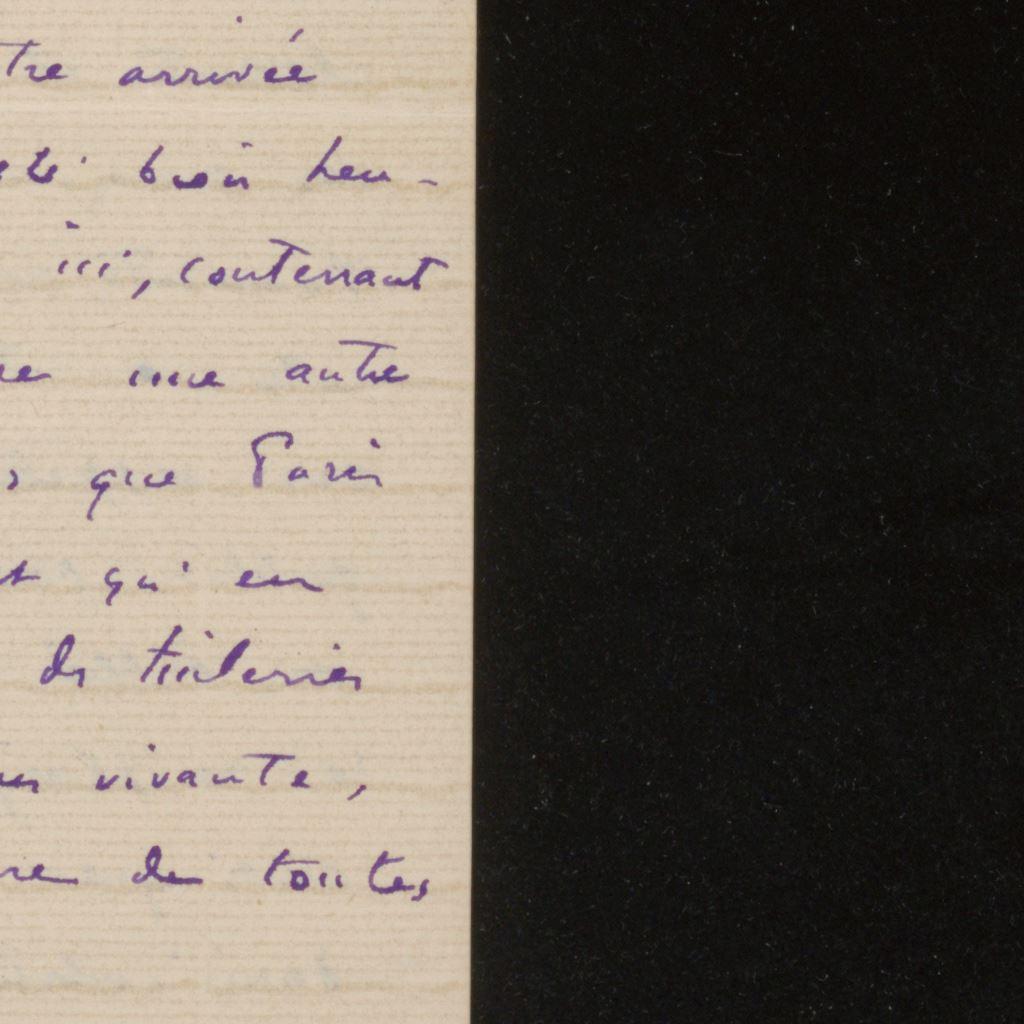 tre arrivée
été bien heu-
ici, contenant
une autre
que Paris
qu'en
des tuileries
vivante,
de toutes